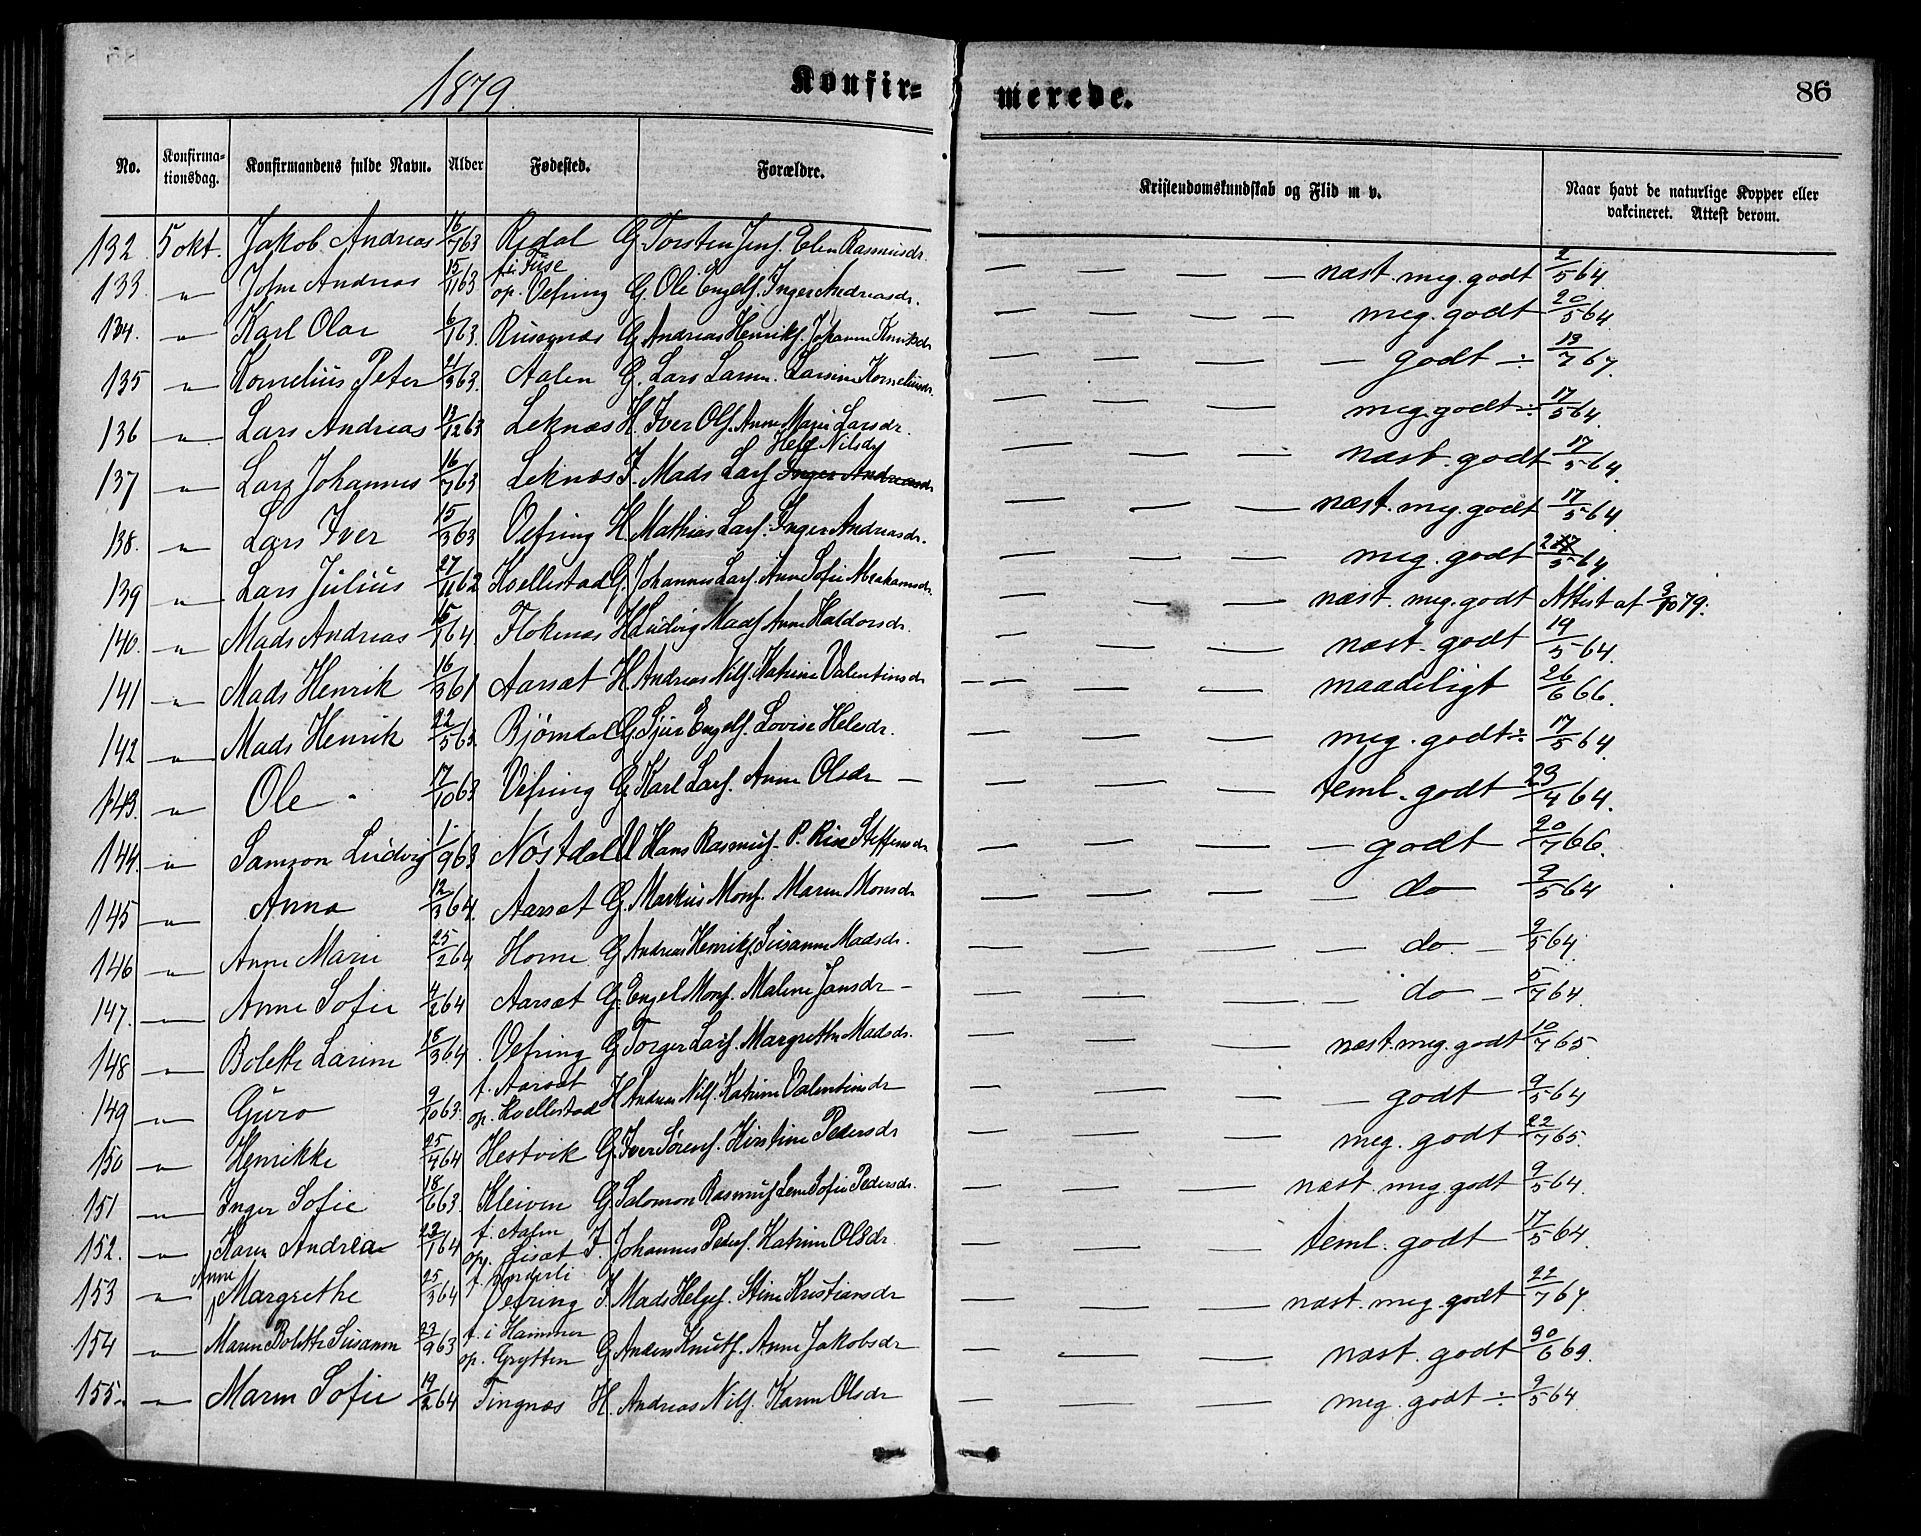 1879.
Konfir=
merede.
86
No.
Konfirma-
tionsdag.
Konfirmandens fulde Navn.
Alder
Fødested.
Forældre.
Kristendomskundskab og Flid m v.
Naar havt de naturlige Kopper eller
vakcineret. Attest derom.
132 5 okt. Jakob Andreas 16/7 63 Redal G Torsten Jens. Elen Rasmusdr. — — — — næst. meg. godt 2/5 64.
133. " John Andreas 15/11 63 f. i Fuse op. Vefring G. Ole Engels. Inger Andreasdr. — — — — meg. godt 20/5 64.
134. " Karl Olai 6/1 63. G Andreas Henriks. Johanne Knutsdr — — — — godt ÷ 13/7 67.
135 " Kornelius Peter 2/3 63. Aalen G. Lars Larsen. Larsine Korneliusdr. — — — meg. godt ÷ 17/5 64.
136 " Lars Andreas 13/12 63 Leknæs H. Iver Ols. Anne Marie Larsdr. — — — næst. godt 17/5 64.
137 " Lars Johannes 16/7 63 Leknæs I. Mads Lars. Inger Andreasdr — — — næst. meg. godt 17/5 64
138. " Lars Iver 15/3 63 Vefring H. Mathias Lars. Inger Andreasdr. — — — meg. godt 5 64
139 " Lars Julius 27/11 62 Kvellestad G. Johannes Lars. Anne Sofie Abrahamsdr. — — — næst. meg. godt Attest af 3/10 79.
140. " Mads Andreas 15/1 64 Flokenæs H. Ludvig Mads. Anne Haldorsdr. — — — næst. godt 19/5 64.
141 " Mads Henrik 16/3 61 Aarsæt H. Andreas Nils. Katrine Valentinsdr — — — maadeligt 26/6 66.
142 " Mads Henrik 22/5 63. Bjørndal G. Sjur Engels. Lovise Helesdr. — — — meg. godt ÷ 17/5 64.
143. " Ole 17/10 63 Vefring G Karl Lars. Anne Olsdr — — — — teml. godt 23/4 64.
144. " Samson Ludvig 1/9 63 Nøstdal U Hans Rasmus. P. Rise Steffensdr — — — — godt 20/7 66.
145 " Anna 12/3 64. Aarsæt G. Markus Mons. Maren Monsdr — — — — do 9/5 64
146 " Anne Marie 25/2 64 Horne G Andreas Henriks. Susanne Madsdr. — — — — do — 9/5 64.
147. " Anne Sofie 4/2 64 Aarsæt G. Engel Mons. Malene Jansdr — — — — — do — 5/7 64.
148 " Bolette Larine 18/3 64. Vefring G Torger Lars. Margrethe Madsdr. — — — næst. meg. godt 10/7 65
149 " Guro 9/10 63. f. Aarsæt op. Kvellestad H Andreas Nils. Katrine Valentinsdr — — — — godt 9/5 64
150 " Henrikke 25/4 64 Hestvik G. Iver Sørens. Kirstine Pedersdr — — — meg. godt 22/7 65.
151 " Inger Sofie 18/6 63. Kleiven G Salomon Rasmus. Lene Sofie Pedersdr. — — — næst meg. godt 9/5 64.
152. " Karen Andrea 23/1 64 f. Aalen op. Lisæt I. Johannes Peders. Katrine Olsdr. — — — teml. godt 17/5 64.
153 " Anne Margrethe 25/3 64 Vefring I. Mads Helges. Stine Kristiansdr — — — næst. meg. godt 22/7 67.
154 " Maren Bolette Susanne 23/9 63 f. i Hammer op. Grytten G Anders Knuts. Anne Jakobsdr — — — næst. godt 30/6 69.
155. " Maren Sofie 19/2 64 Tingnæs H. Andreas Nils. Karen Olsdr — — — meg. godt ÷ 9/5 64.